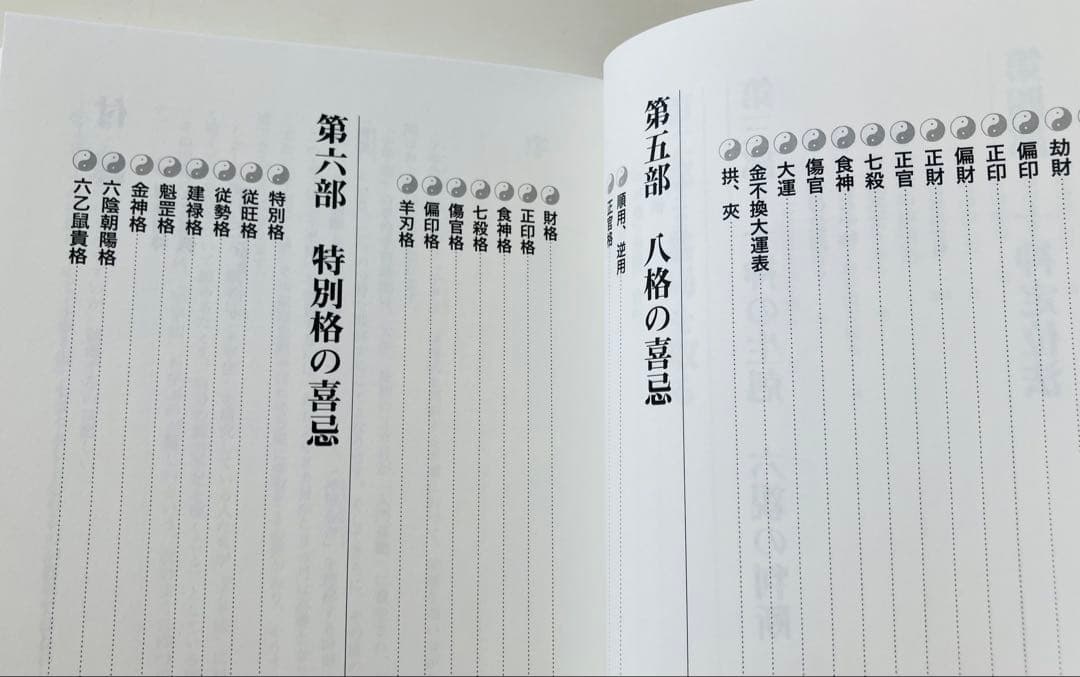 劫財
偏印
正印
偏財
正財
正官
七殺
食神
傷官
大運
金不換大運表
拱、夾
第五部 八格の喜忌
順用、逆用
正官格
財格
正印格
食神格
七殺格
傷官格
偏印格
羊刃格
第六部 特別格の喜忌
特別格
従旺格
従勢格
建禄格
魁罡格
金神格
六陰朝陽格
六乙鼠貴格